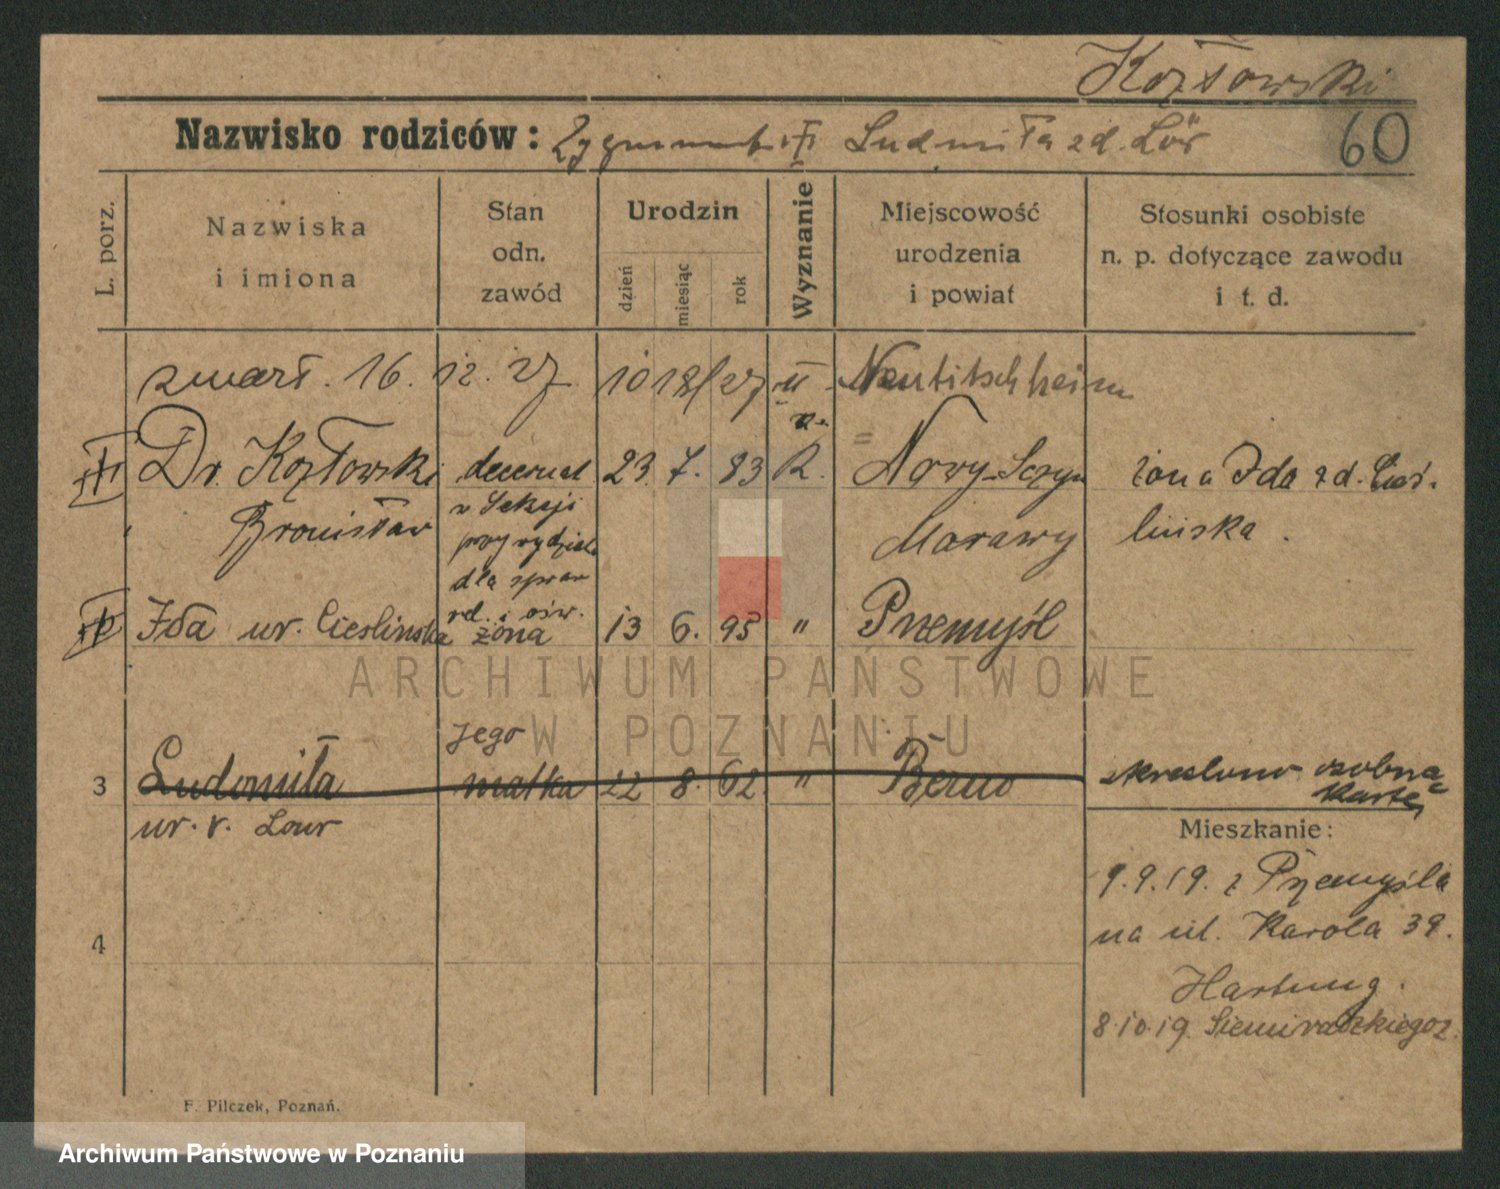 Kozłowski
Nazwisko rodziców: Zygmunt i Ludmiła zd. Lör
60
L. porz.
Nazwiska i imiona
Stan odn. zawód
Urodzin
dzień miesiąc rok
Wyznanie
Miejscowość urodzenia i powiat
Stosunki osobiste n. p. dotyczące zawodu i t. d.
zmarł. 16. 12. 27
Neutitschheim
Dr. Kozłowski decernent 23. 7. 83 R. Nowy-Iczyn żona Ida zd. Cieś-
Bronisław w Sekcji Morawy lińska.
przy wydziale
dla spraw
rel. i ośw.
Ida ur. Cieslinska żona 13 6. 95 " Przemyśl
ARCHIWUM PAŃSTWOWE
W POZNANIU
jego
3 Ludomiła matka 22 8. 62 " Berno skreslono osobna
kartę
ur. v. Lour
Mieszkanie:
9.9.19. z Przemyśla
na ul. Karola 39.
4
Hartung.
8.10.19. Siemiradzkiego 2.
F. Pilczek, Poznań.
Archiwum Państwowe w Poznaniu